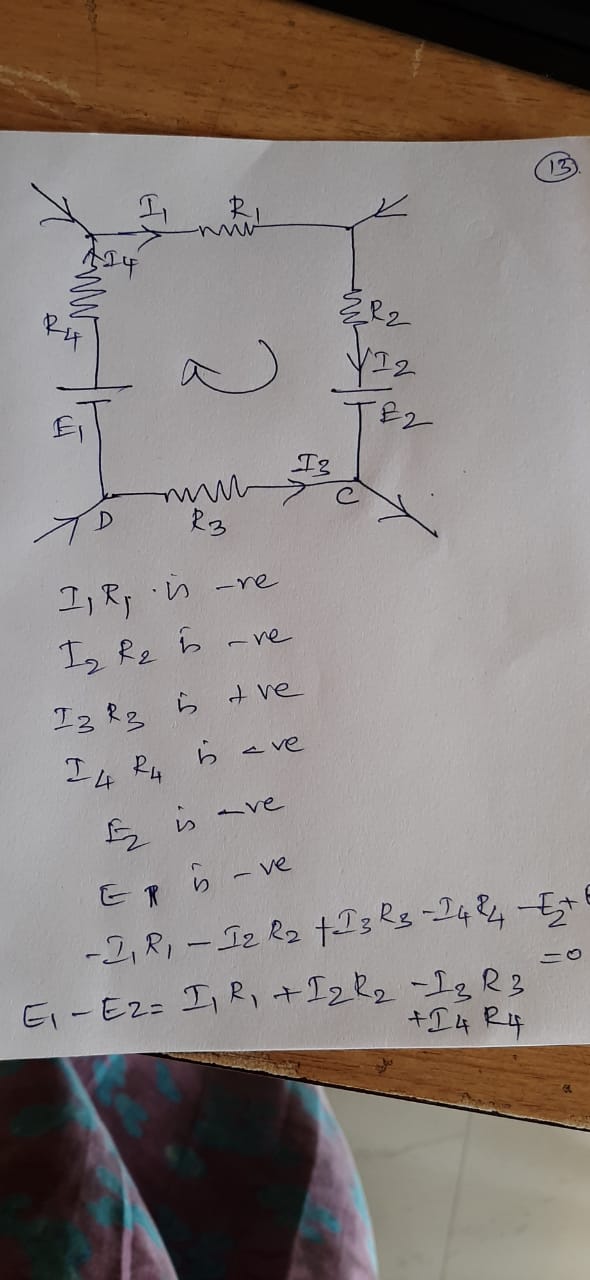 13
I₁ R₁
I4
R4
R2
I2
E₁
E2
I3
D R3 C
I₁ R₁ is -ve
I₂ R₂ is -ve
I3 R3 is +ve
I4 R4 is -ve
E₂ is -ve
is -ve
-I₁R₁ - I2 R2 + I3 R3 - I4 R4 - E2 +
=0
E₁ - E2 = I₁ R₁ + I2R2 - I3 R3
+ I4 R4